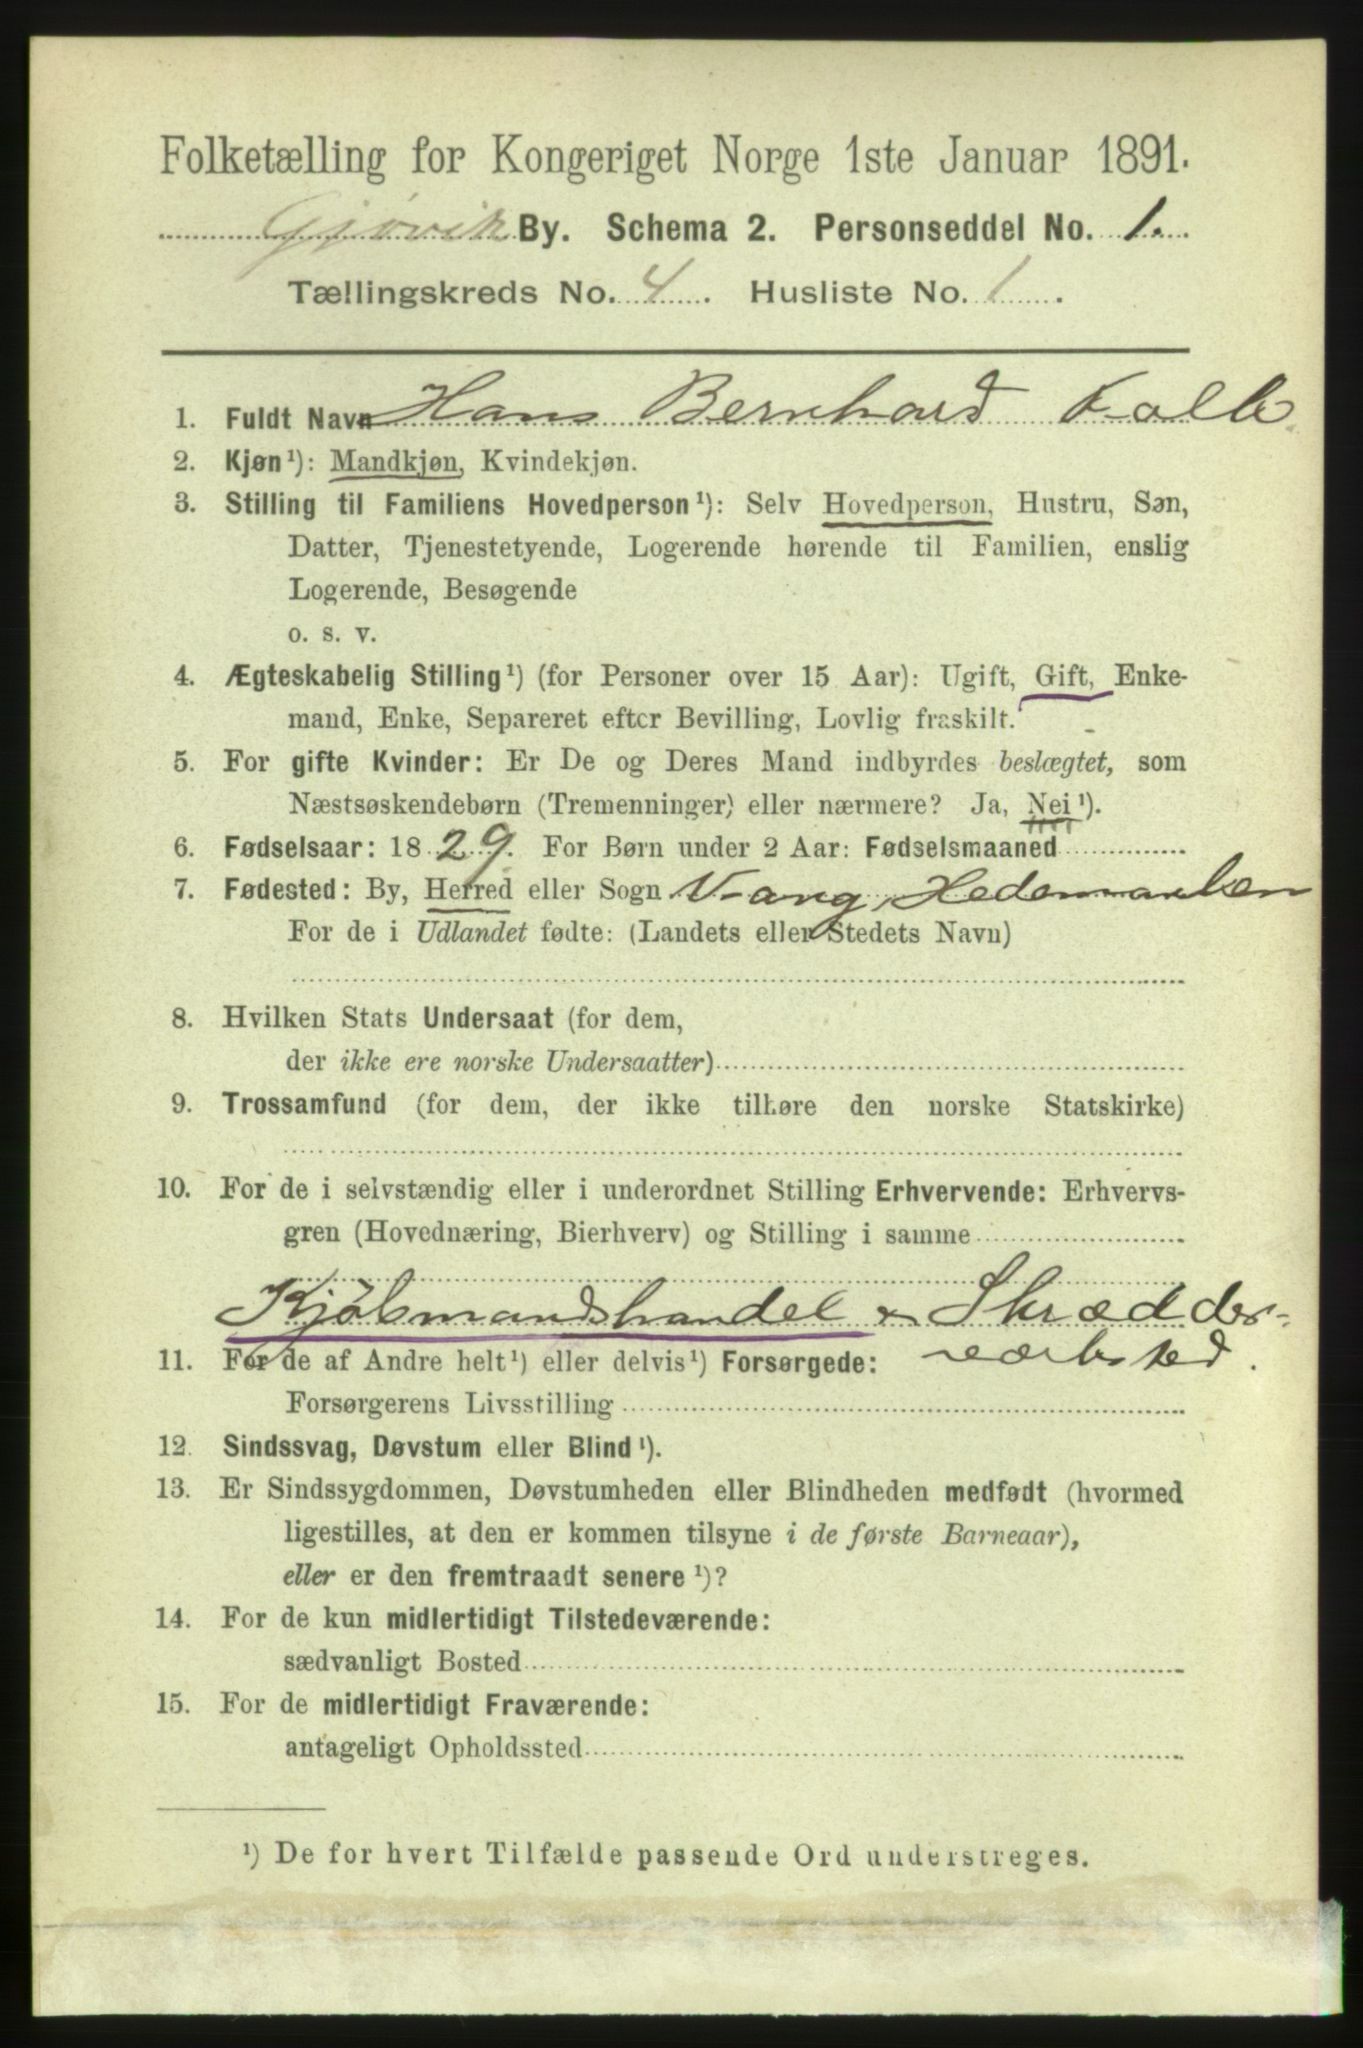 Folketælling for Kongeriget Norge 1ste Januar 1891.
Gjøvik By. Schema 2. Personseddel No. 1.
Tællingskreds No. 4. Husliste No. 1.
1. Fuldt Navn Hans Bernhard
2. Kjøn¹): Mandkjøn, Kvindekjøn.
3. Stilling til Familiens Hovedperson¹): Selv Hovedperson, Hustru, Søn,
Datter, Tjenestetyende, Logerende hørende til Familien, enslig
Logerende, Besøgende
o. s. v.
4. Ægteskabelig Stilling¹) (for Personer over 15 Aar): Ugift, Gift, Enke-
mand, Enke, Separeret efter Bevilling, Lovlig fraskilt.
5. For gifte Kvinder: Er De og Deres Mand indbyrdes beslægtet, som
Næstsøskendebørn (Tremenninger) eller nærmere? Ja, Nei¹).
6. Fødselsaar: 1829. For Børn under 2 Aar: Fødselsmaaned
7. Fødested: By, Herred eller Sogn Vang, Hedemarken
For de i Udlandet fødte: (Landets eller Stedets Navn)
8. Hvilken Stats Undersaat (for dem,
der ikke ere norske Undersaatter)
9. Trossamfund (for dem, der ikke tilhøre den norske Statskirke)
10. For de i selvstændig eller i underordnet Stilling Erhvervende: Erhvervs-
gren (Hovednæring, Bierhverv) og Stilling i samme
Kjøbmandshandel & Skrædder-
værksted.
11. For de af Andre helt¹) eller delvis¹) Forsørgede:
Forsørgerens Livsstilling
12. Sindssvag, Døvstum eller Blind¹).
13. Er Sindssygdommen, Døvstumheden eller Blindheden medfødt (hvormed
ligestilles, at den er kommen tilsyne i de første Barneaar),
eller er den fremtraadt senere¹)?
14. For de kun midlertidigt Tilstedeværende:
sædvanligt Bosted
15. For de midlertidigt Fraværende:
antageligt Opholdssted
¹) De for hvert Tilfælde passende Ord understreges.